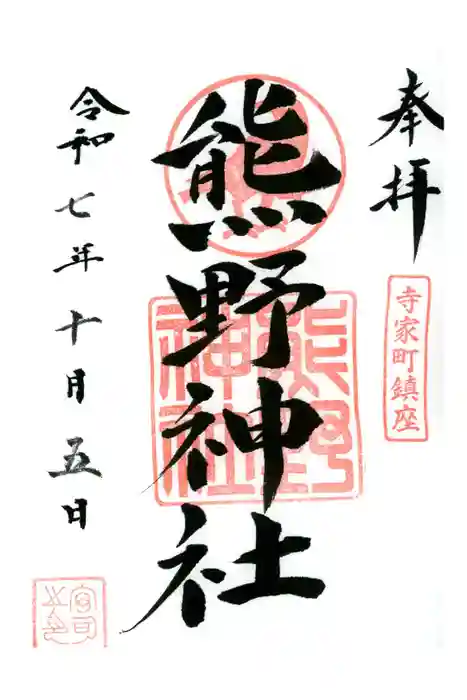 奉拝
寺家町鎮座
熊野神社
熊野
神社
令和七年十月五日
宮司
之印